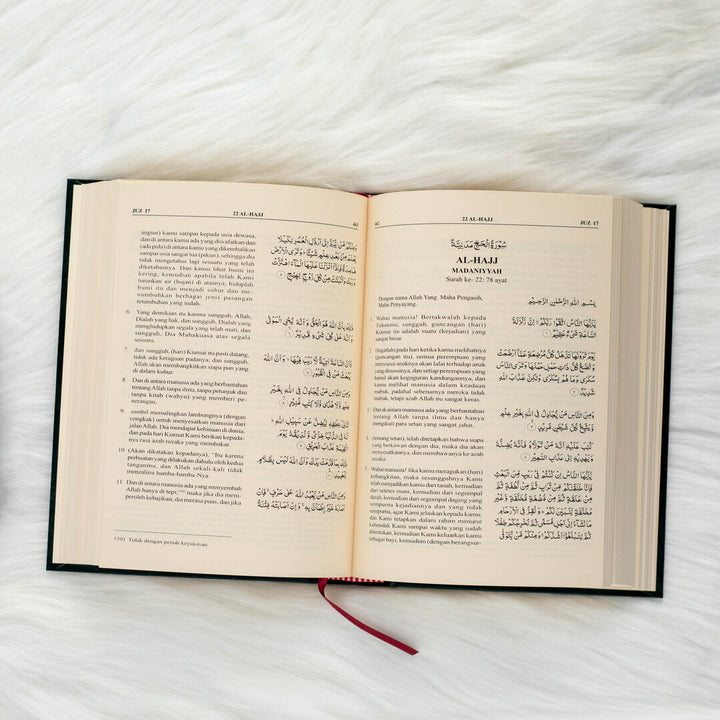 462
22 AL-HAJJ
JUZ 17
سُوْرَةُ الْحَجِّ مَدَنِيَّةٌ
AL-HAJJ
MADANIYYAH
Surah ke- 22: 78 ayat
Dengan nama Allah Yang Maha Pengasih,
Maha Penyayang.
بِسْمِ اللهِ الرَّحْمٰنِ الرَّحِيْمِ
Wahai manusia! Bertakwalah kepada
Tuhanmu; sungguh, guncangan (hari)
Kiamat itu adalah suatu (kejadian) yang
sangat besar.
يٰٓاَيُّهَا النَّاسُ اتَّقُوْا رَبَّكُمْ ۚ اِنَّ زَلْزَلَةَ
السَّاعَةِ شَيْءٌ عَظِيْمٌ ١
(Ingatlah) pada hari ketika kamu melihatnya
(goncangan itu), semua perempuan yang
menyusui anaknya akan lalai terhadap anak
yang disusuinya, dan setiap perempuan yang
hamil akan keguguran kandungannya, dan
kamu melihat manusia dalam keadaan
mabuk, padahal sebenarnya mereka tidak
mabuk, tetapi azab Allah itu sangat keras.
يَوْمَ تَرَوْنَهَا تَذْهَلُ كُلُّ مُرْضِعَةٍ عَمَّآ اَرْضَعَتْ
وَتَضَعُ كُلُّ ذَاتِ حَمْلٍ حَمْلَهَا وَتَرَى النَّاسَ
سُكٰرٰى وَمَا هُمْ بِسُكٰرٰى وَلٰكِنَّ عَذَابَ اللهِ
شَدِيْدٌ ٢
Dan di antara manusia ada yang berbantahan
tentang Allah tanpa ilmu dan hanya
mengikuti para setan yang sangat jahat.
وَمِنَ النَّاسِ مَنْ يُّجَادِلُ فِى اللهِ بِغَيْرِ عِلْمٍ
وَّيَتَّبِعُ كُلَّ شَيْطٰنٍ مَّرِيْدٍ ٣
(tentang setan), telah ditetapkan bahwa siapa
yang berkawan dengan dia, maka dia akan
menyesatkannya, dan membawanya ke azab
neraka.
كُتِبَ عَلَيْهِ اَنَّهٗ مَنْ تَوَلَّاهُ فَاَنَّهٗ يُضِلُّهٗ
وَيَهْدِيْهِ اِلٰى عَذَابِ السَّعِيْرِ ٤
Wahai manusia! Jika kamu meragukan (hari)
kebangkitan, maka sesungguhnya Kami
telah menjadikan kamu dari tanah, kemudian
dari setetes mani, kemudian dari segumpal
darah, kemudian dari segumpal daging yang
sempurna kejadiannya dan yang tidak
sempurna, agar Kami jelaskan kepada kamu;
dan Kami tetapkan dalam rahim menurut
kehendak Kami sampai waktu yang sudah
ditentukan, kemudian Kami keluarkan kamu
sebagai bayi, kemudian (dengan berangsur-
يٰٓاَيُّهَا النَّاسُ اِنْ كُنْتُمْ فِيْ رَيْبٍ مِّنَ الْبَعْثِ
فَاِنَّا خَلَقْنٰكُمْ مِّنْ تُرَابٍ ثُمَّ مِنْ نُّطْفَةٍ ثُمَّ مِنْ
عَلَقَةٍ ثُمَّ مِنْ مُّضْغَةٍ مُّخَلَّقَةٍ وَّغَيْرِ
مُخَلَّقَةٍ لِّنُبَيِّنَ لَكُمْ ۗ وَنُقِرُّ فِى الْاَرْحَامِ
مَا نَشَاۤءُ اِلٰٓى اَجَلٍ مُّسَمًّى ثُمَّ نُخْرِجُكُمْ طِفْلًا
ثُمَّ لِتَبْلُغُوْٓا اَشُدَّكُمْ ۚ وَمِنْكُمْ مَّنْ يُّتَوَفّٰى
JUZ 17
22 AL-HAJJ
463
angsur) kamu sampai kepada usia dewasa,
dan di antara kamu ada yang diwafatkan dan
(ada pula) di antara kamu yang dikembalikan
sampai usia sangat tua (pikun), sehingga dia
tidak mengetahui lagi sesuatu yang telah
diketahuinya. Dan kamu lihat bumi ini
kering, kemudian apabila telah Kami
turunkan air (hujan) di atasnya, hiduplah
bumi itu dan menjadi subur dan me-
numbuhkan berbagai jenis pasangan
tetumbuhan yang indah.
وَمِنْكُمْ مَّنْ يُّرَدُّ اِلٰٓى اَرْذَلِ الْعُمُرِ لِكَيْلَا
يَعْلَمَ مِنْۢ بَعْدِ عِلْمٍ شَيْـًٔا ۗ وَتَرَى الْاَرْضَ
هَامِدَةً فَاِذَآ اَنْزَلْنَا عَلَيْهَا الْمَاۤءَ اهْتَزَّتْ
وَرَبَتْ وَاَنْۢبَتَتْ مِنْ كُلِّ زَوْجٍۢ بَهِيْجٍ ٥
6. Yang demikian itu karena sungguh, Allah,
Dialah yang hak dan sungguh, Dialah yang
menghidupkan segala yang telah mati, dan
sungguh, Dia Mahakuasa atas segala
sesuatu.
ذٰلِكَ بِاَنَّ اللهَ هُوَ الْحَقُّ وَاَنَّهٗ يُحْيِ الْمَوْتٰى
وَاَنَّهٗ عَلٰى كُلِّ شَيْءٍ قَدِيْرٌ ٦
7. dan sungguh, (hari) Kiamat itu pasti datang,
tidak ada keraguan padanya; dan sungguh,
Allah akan membangkitkan siapa pun yang
di dalam kubur.
وَّاَنَّ السَّاعَةَ اٰتِيَةٌ لَّا رَيْبَ فِيْهَا ۙ وَاَنَّ اللهَ
يَبْعَثُ مَنْ فِى الْقُبُوْرِ ٧
8. Dan di antara manusia ada yang berbantahan
tentang Allah tanpa ilmu, tanpa petunjuk dan
tanpa kitab (wahyu) yang memberi pe-
nerangan.
وَمِنَ النَّاسِ مَنْ يُّجَادِلُ فِى اللهِ بِغَيْرِ
عِلْمٍ وَّلَا هُدًى وَّلَا كِتٰبٍ مُّنِيْرٍ ٨
9. sambil memalingkan lambungnya (dengan
congkak) untuk menyesatkan manusia dari
jalan Allah. Dia mendapat kehinaan di dunia,
dan pada hari Kiamat Kami berikan kepada-
nya rasa azab neraka yang membakar.
ثَانِيَ عِطْفِهٖ لِيُضِلَّ عَنْ سَبِيْلِ اللهِ ۗ
لَهٗ فِى الدُّنْيَا خِزْيٌ وَّنُذِيْقُهٗ يَوْمَ
الْقِيٰمَةِ عَذَابَ الْحَرِيْقِ ٩
10. (Akan dikatakan kepadanya), "Itu karena
perbuatan yang dilakukan dahulu oleh kedua
tanganmu, dan Allah sekali-kali tidak
menzalimi hamba-hamba-Nya.
ذٰلِكَ بِمَا قَدَّمَتْ يَدٰكَ وَاَنَّ اللهَ لَيْسَ بِظَلَّامٍ
لِّلْعَبِيْدِ ١٠
11. Dan di antara manusia ada yang menyembah
Allah hanya di tepi;⁵³⁹⁾ maka jika dia mem-
peroleh kebajikan, dia merasa puas, dan jika
وَمِنَ النَّاسِ مَنْ يَّعْبُدُ اللهَ عَلٰى حَرْفٍ ۚ فَاِنْ
اَصَابَهٗ خَيْرُ ࣙاطْمَـَٔنَّ بِهٖ ۚ وَاِنْ اَصَابَتْهُ فِتْنَةُ
539) Tidak dengan penuh keyakinan.